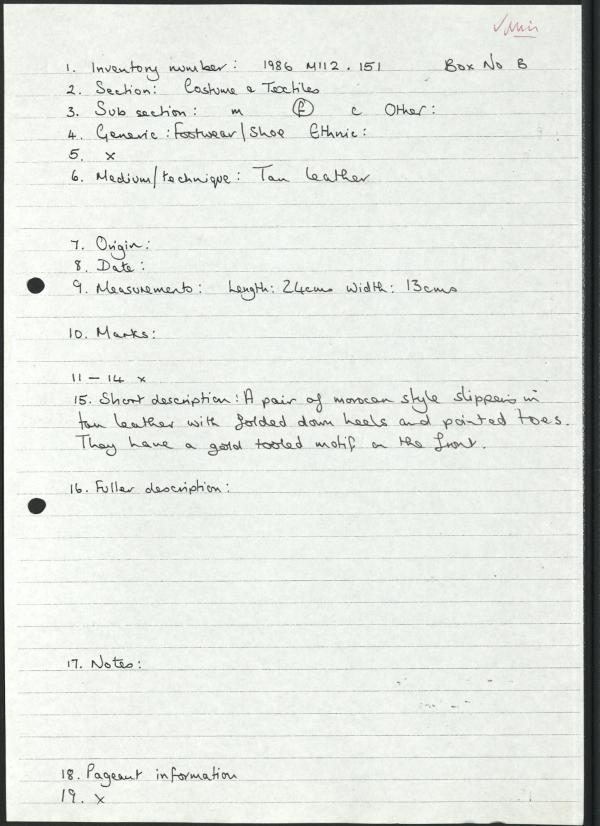 1. Inventory number: 1986 M112.151 Box No B
2. Section: Costume & Textiles
3. Sub section: m f c Other:
4. Generic: Footwear/Shoe Ethnic:
5. x
6. Medium/technique: Tan leather
7. Origin:
8. Date:
9. Measurements: Length: 24cms Width: 13cms
10. Marks:
11 - 14 x
15. Short description: A pair of morocan style slippers in
tan leather with folded down heels and pointed toes.
They have a gold tooled motif on the front.
16. Fuller description:
17. Notes:
18. Pageant information
19. x